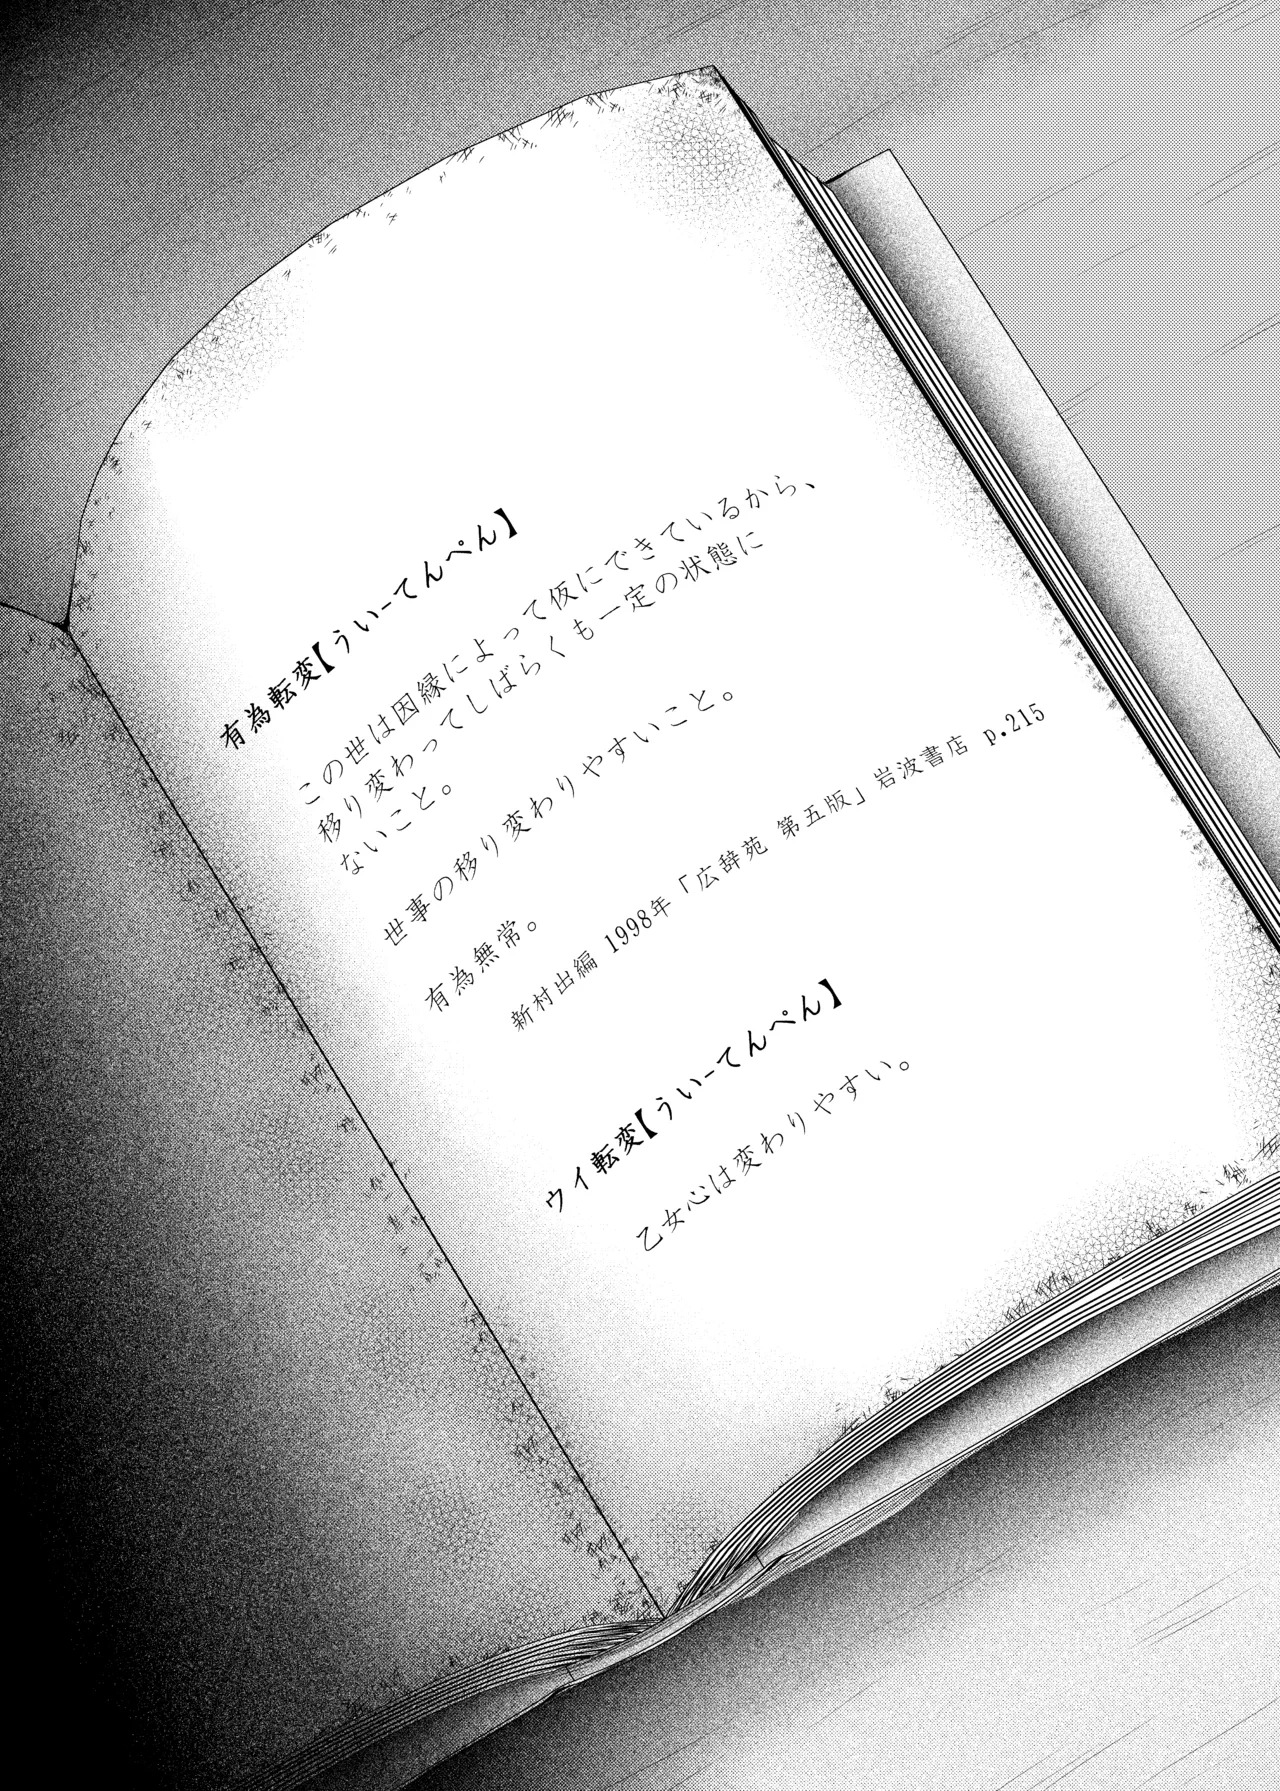 有為転変【うい-てんぺん】
この世は因縁によって仮にできているから、
移り変わってしばらくも一定の状態に
ないこと。
世事の移り変わりやすいこと。
有為無常。
新村出編 1998年「広辞苑 第五版」岩波書店 p.215
ウイ転変【うい-てんぺん】
乙女心は変わりやすい。